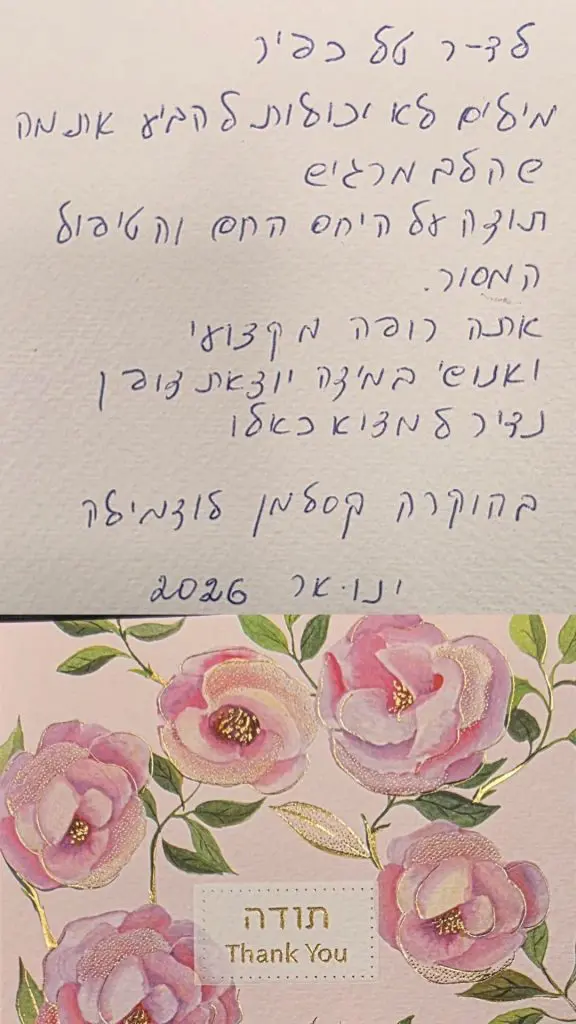 לד-ר טל כפיר
מילים לא יכולות להביע את מה
שהלב מרגיש
תודה על היחס החם והטיפול
המסור.
אתה רופה מקצועי
ואנושי במידה יוצאת דופן
נדיר למצוא כאלו
בהוקרה קסלמן לודמילה
ינואר 2026
תודה
Thank You